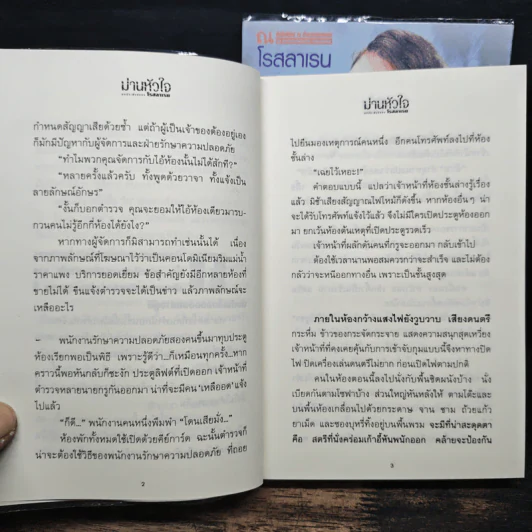 ณ
โรสลาเรน
ม่านหัวใจ
โรสลาเรน
กำหนดสัญญาเสียด้วยซ้ำ แต่ถ้าผู้เป็นเจ้าของต้องอยู่เอง
ก็มักมีปัญหากับผู้จัดการและฝ่ายรักษาความปลอดภัย
“ทำไมพวกคุณจัดการกับไอ้ห้องนั้นไม่ได้สักที?”
“หลายครั้งแล้วครับ ทั้งพูดด้วยวาจา ทั้งแจ้งเป็น
ลายลักษณ์อักษร”
“งั้นก็บอกตำรวจ คุณจะยอมให้ไอ้ห้องเดียวมารบ-
กวนคนไม่รู้อีกกี่ห้องได้ยังไง?”
หากทางผู้จัดการก็มิสามารถทำเช่นนั้นได้ เนื่อง
จากภาพลักษณ์ที่โฆษณาไว้ว่าเป็นคอนโดมิเนียมริมแม่น้ำ
ราคาแพง บริการยอดเยี่ยม ข้อสำคัญยังมีอีกหลายห้องที่
ขายไม่ได้ ขืนแจ้งตำรวจจะได้เป็นข่าว แล้วภาพลักษณ์จะ
เหลืออะไร
พนักงานรักษาความปลอดภัยสองคนขึ้นมาทุบประตู
ห้องเรียกพอเป็นพิธี เพราะรู้ดีว่า...ก็เหมือนทุกครั้ง...หาก
คราวนี้พอหันกลับก็ชะงัก ประตูลิฟต์ที่เปิดออก เจ้าหน้าที่
ตำรวจหลายนายกรูกันออกมา น่าที่จะมีคน ‘เหลืออด’ แจ้ง
ไปแล้ว
“ก็ดี...” พนักงานคนหนึ่งพึมพำ “โดนเสียมั่ง...”
ห้องพักทั้งหมดใช้เปิดด้วยคีย์การ์ด ฉะนั้นตำรวจก็
น่าจะต้องใช้วิธีของพนักงานรักษาความปลอดภัย ที่ถอย
2
ม่านหัวใจ
โรสลาเรน
ไปยืนมองเหตุการณ์คนหนึ่ง อีกคนโทรศัพท์ลงไปที่ห้อง
ชั้นล่าง
“เฉยไว้เหอะ!”
คำตอบแบบนี้ แปลว่าเจ้าหน้าที่ชั้นล่างรู้เรื่อง
แล้ว มิช้าเสียงสัญญาณไฟไหม้ก็ดังขึ้น หากห้องอื่นๆ น่า
จะได้รับโทรศัพท์แจ้งไว้แล้ว จึงไม่มีใครเปิดประตูห้องออก
มา ยกเว้นห้องต้นเหตุที่เปิดประตูรวดเร็ว
เจ้าหน้าที่ผลักดันคนที่กรูจะออกมา กลับเข้าไป
ใช้เวลานานพอสมควรกว่าจะสำเร็จ และไม่ต้อง
กลัวว่าจะหนีออกทางอื่น เพราะเป็นชั้นสูงสุด
ภายในห้องกว้างแสงไฟยังวูบวาบ เสียงดนตรี
กระหึ่ม ข้าวของกระจัดกระจาย แสดงความสนุกสุดเหวี่ยง
เจ้าหน้าที่ที่คงเคยคุ้นกับการเข้าจับกุมแบบนี้จึงหาทางปิด
ไฟ ปิดเครื่องเล่นดนตรีไม่ยาก ก่อนเปิดไฟตามปกติ
คนในห้องตอนนี้ลงไปนั่งกับพื้นชิดผนังบ้าง นั่ง
เบียดกันตามโซฟาบ้าง ส่วนใหญ่หันหลังให้ ตามโต๊ะและ
บนพื้นห้องเกลื่อนไปด้วยกระดาษ จาน ชาม ถ้วยแก้ว
ยาเม็ด และซองบุหรี่ทิ้งอยู่บนพื้นพรม จะมีที่น่าสะดุดตา
คือ สตรีที่นั่งคร่อมเก้าอี้หันพนักออก คล้ายจะป้องกัน
3